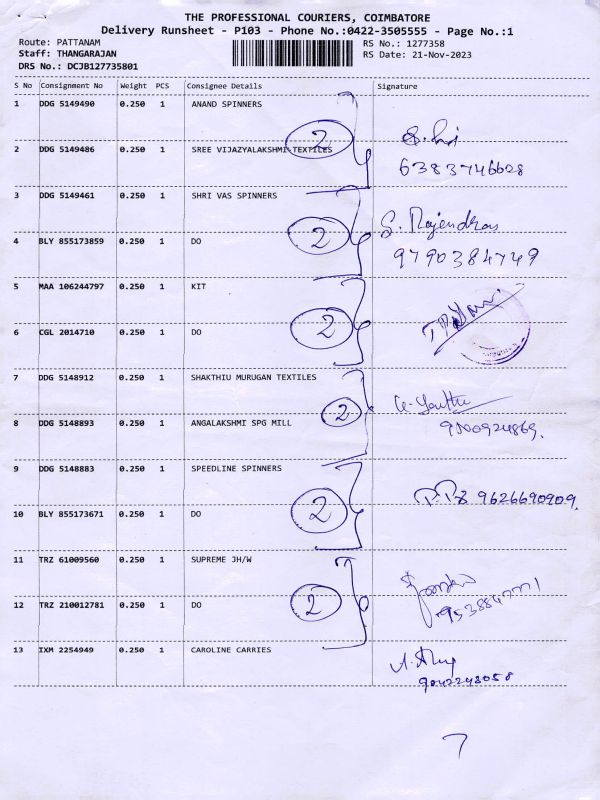 THE PROFESSIONAL COURIERS, COIMBATORE
Delivery Runsheet - P103 - Phone No.:0422-3505555 - Page No.:1
Route: PATTANAM RS No.: 1277358
Staff: THANGARAJAN RS Date: 21-Nov-2023
DRS No.: DCJB127735801
S No Consignment No Weight PCS Consignee Details Signature
1 DDG 5149490 0.250 1 ANAND SPINNERS
2
2 DDG 5149486 0.250 1 SREE VIJAZYALAKSHMI TEXTILES
6383746628
3 DDG 5149461 0.250 1 SHRI VAS SPINNERS
2 S. Rajendran
4 BLY 855173859 0.250 1 DO
9790384749
5 MAA 106244797 0.250 1 KIT
2
6 CGL 2014710 0.250 1 DO
7 DDG 5148912 0.250 1 SHAKTHIU MURUGAN TEXTILES
2
8 DDG 5148893 0.250 1 ANGALAKSHMI SPG MILL
9500924869.
9 DDG 5148883 0.250 1 SPEEDLINE SPINNERS
9626690909.
2
10 BLY 855173671 0.250 1 DO
11 TRZ 61009560 0.250 1 SUPREME JH/W
2
12 TRZ 210012781 0.250 1 DO
13 IXM 2254949 0.250 1 CAROLINE CARRIES
9042243058
7